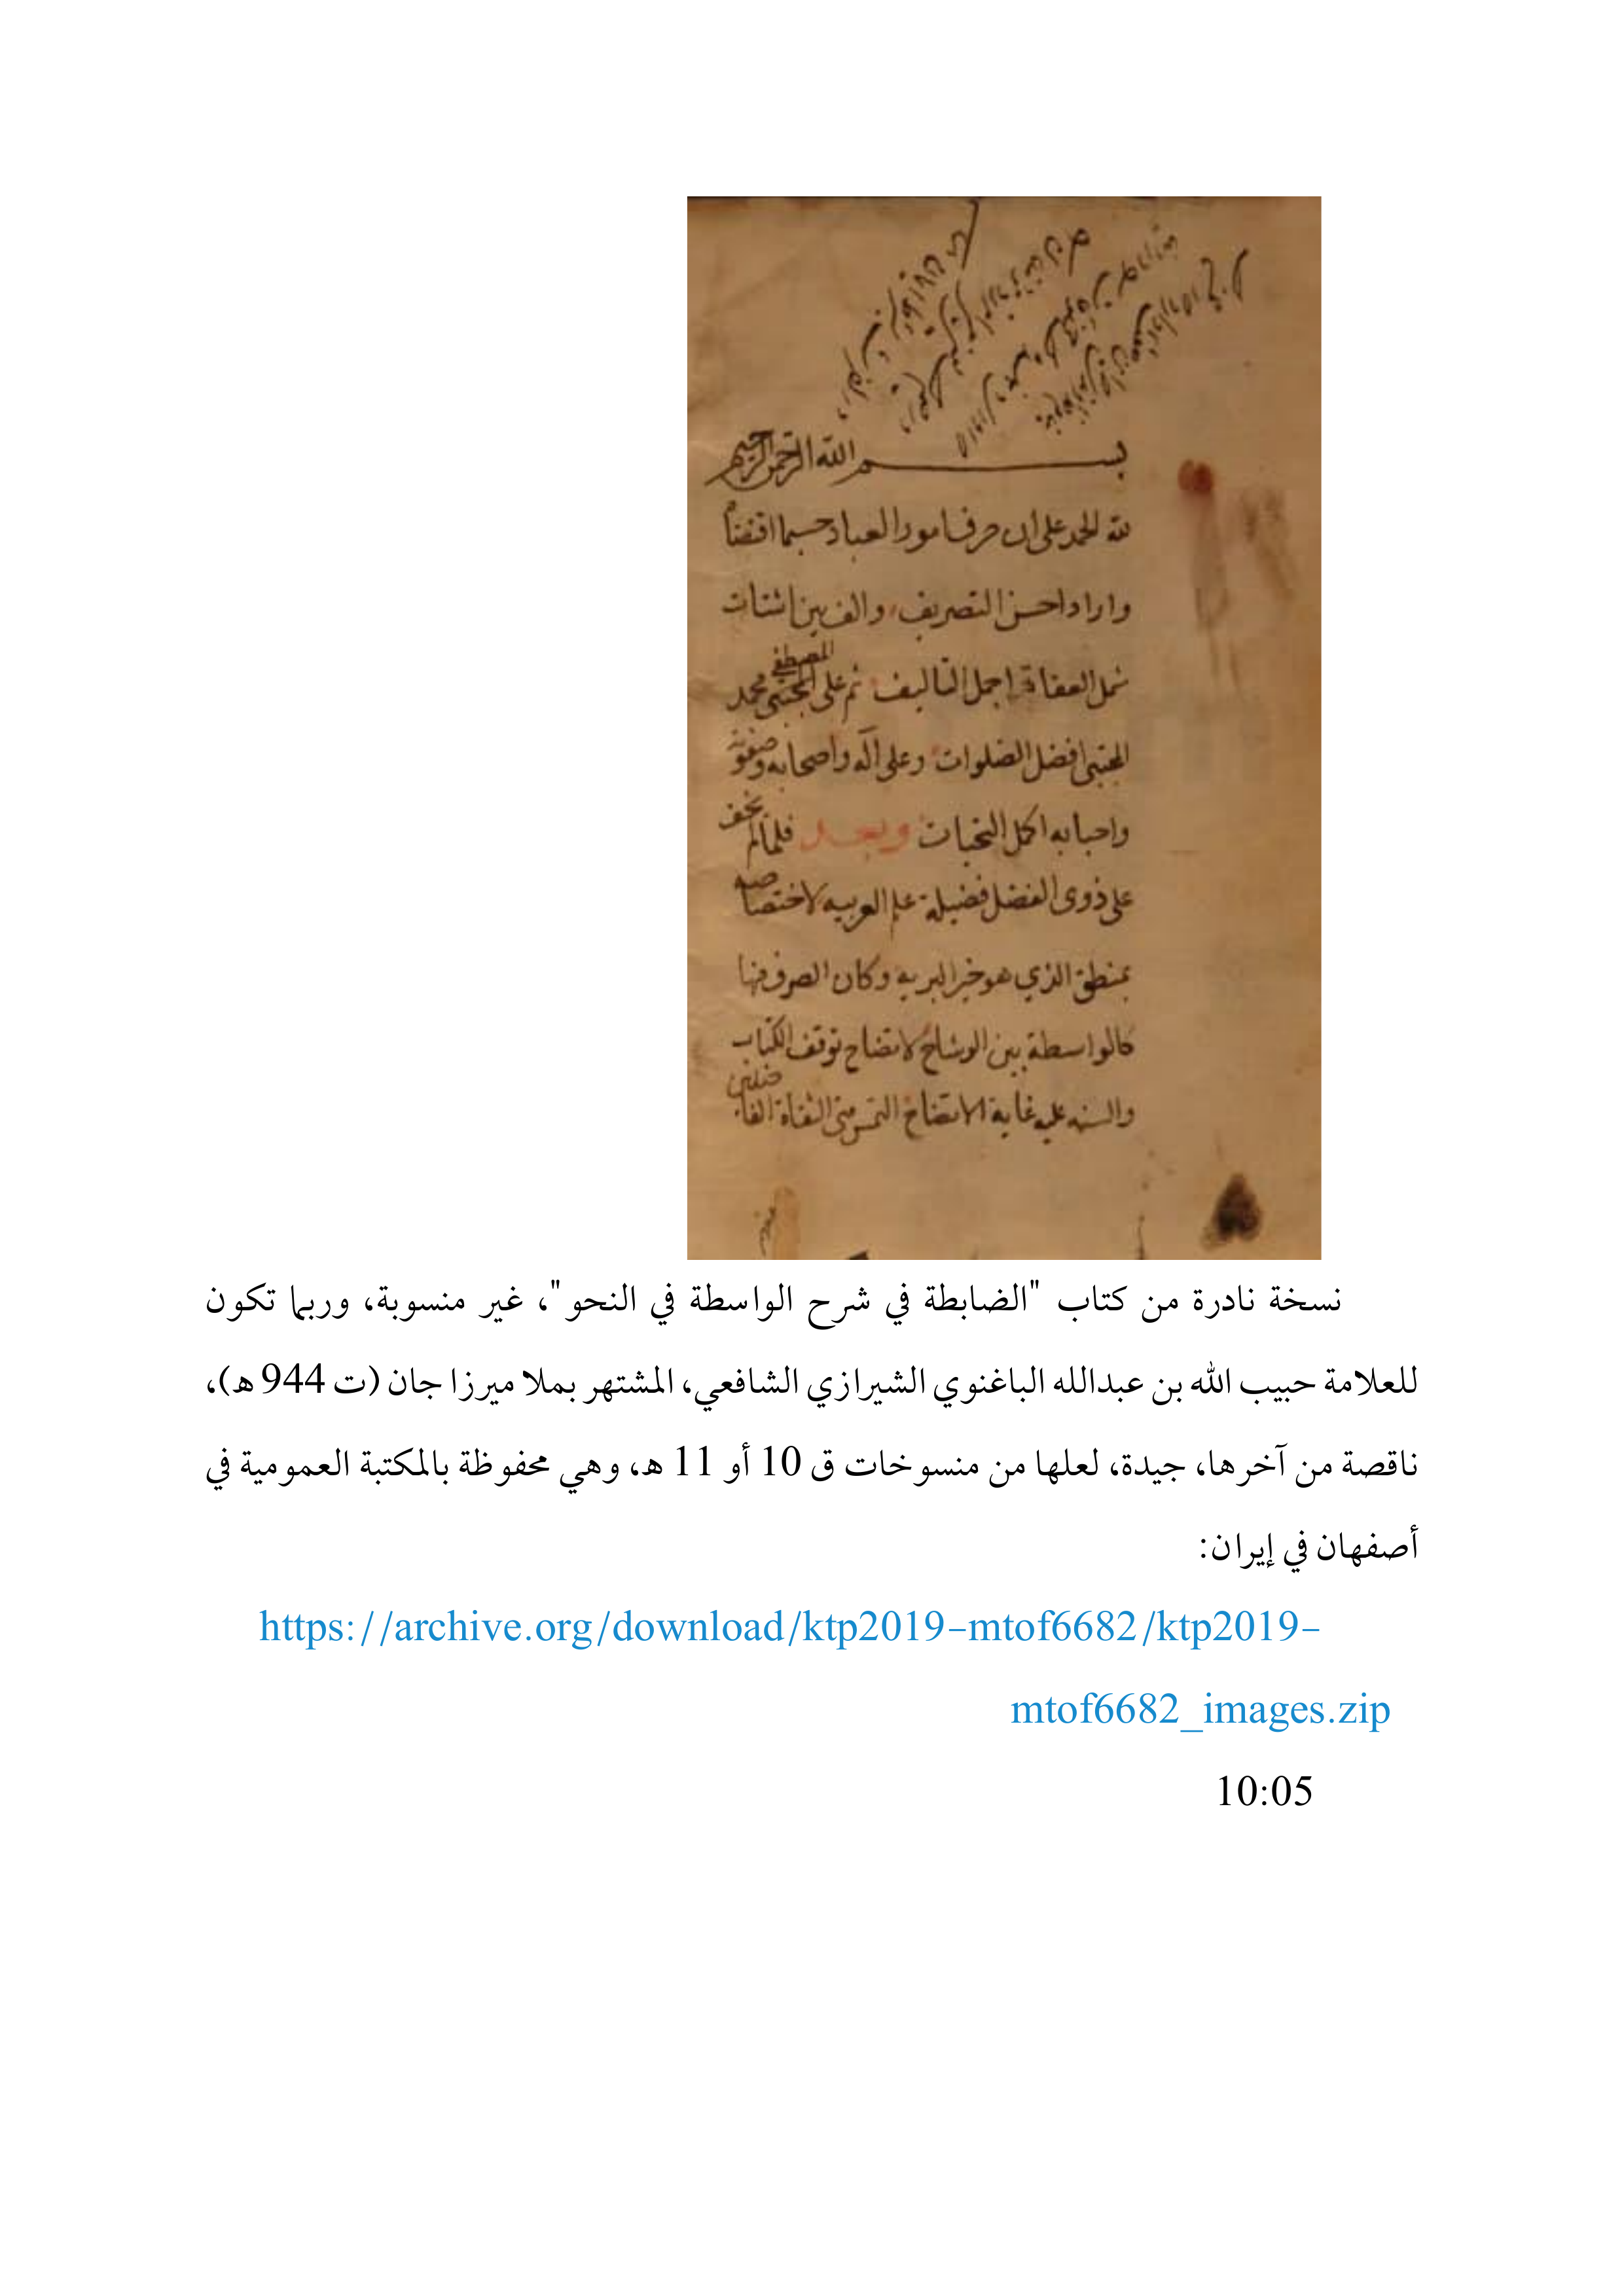 بسم الله الرحمن الرحيم
لله الحمد على ان صرف امور العباد حسبما اقتضا
واراد احسن التصريف والف بين اشتات
شمل العفاة اجمل التاليف ثم على المجتبى المصطفى محمد
المجتبى افضل الصلوات وعلى آله واصحابه وصفوته
واحبابه اكمل التحيات وبعد فلما لم يخف
على ذوى الفضل فضيلة علم العربيه لاختصاصه
بمنطق الذي هو خير البريه وكان الصرف فيها
كالواسطة بين الوشاح لاتضاح توقف الكتاب
والسنه عليه غاية الاتضاح التمس منى
نسخة نادرة من كتاب "الضابطة في شرح الواسطة في النحو"، غير منسوبة، وربما تكون
للعلامة حبيب الله بن عبدالله الباغنوي الشيرازي الشافعي، المشتهر بملا ميرزا جان (ت 944 هـ)،
ناقصة من آخرها، جيدة، لعلها من منسوخات ق 10 أو 11 هـ، وهي محفوظة بالمكتبة العمومية في
أصفهان في إيران:
https://archive.org/download/ktp2019-mtof6682/ktp2019-
mtof6682_images.zip
10:05